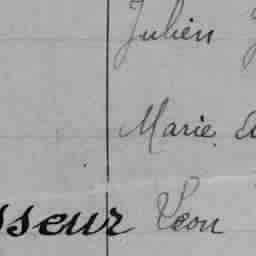 Julien
Marie
sseur Léon